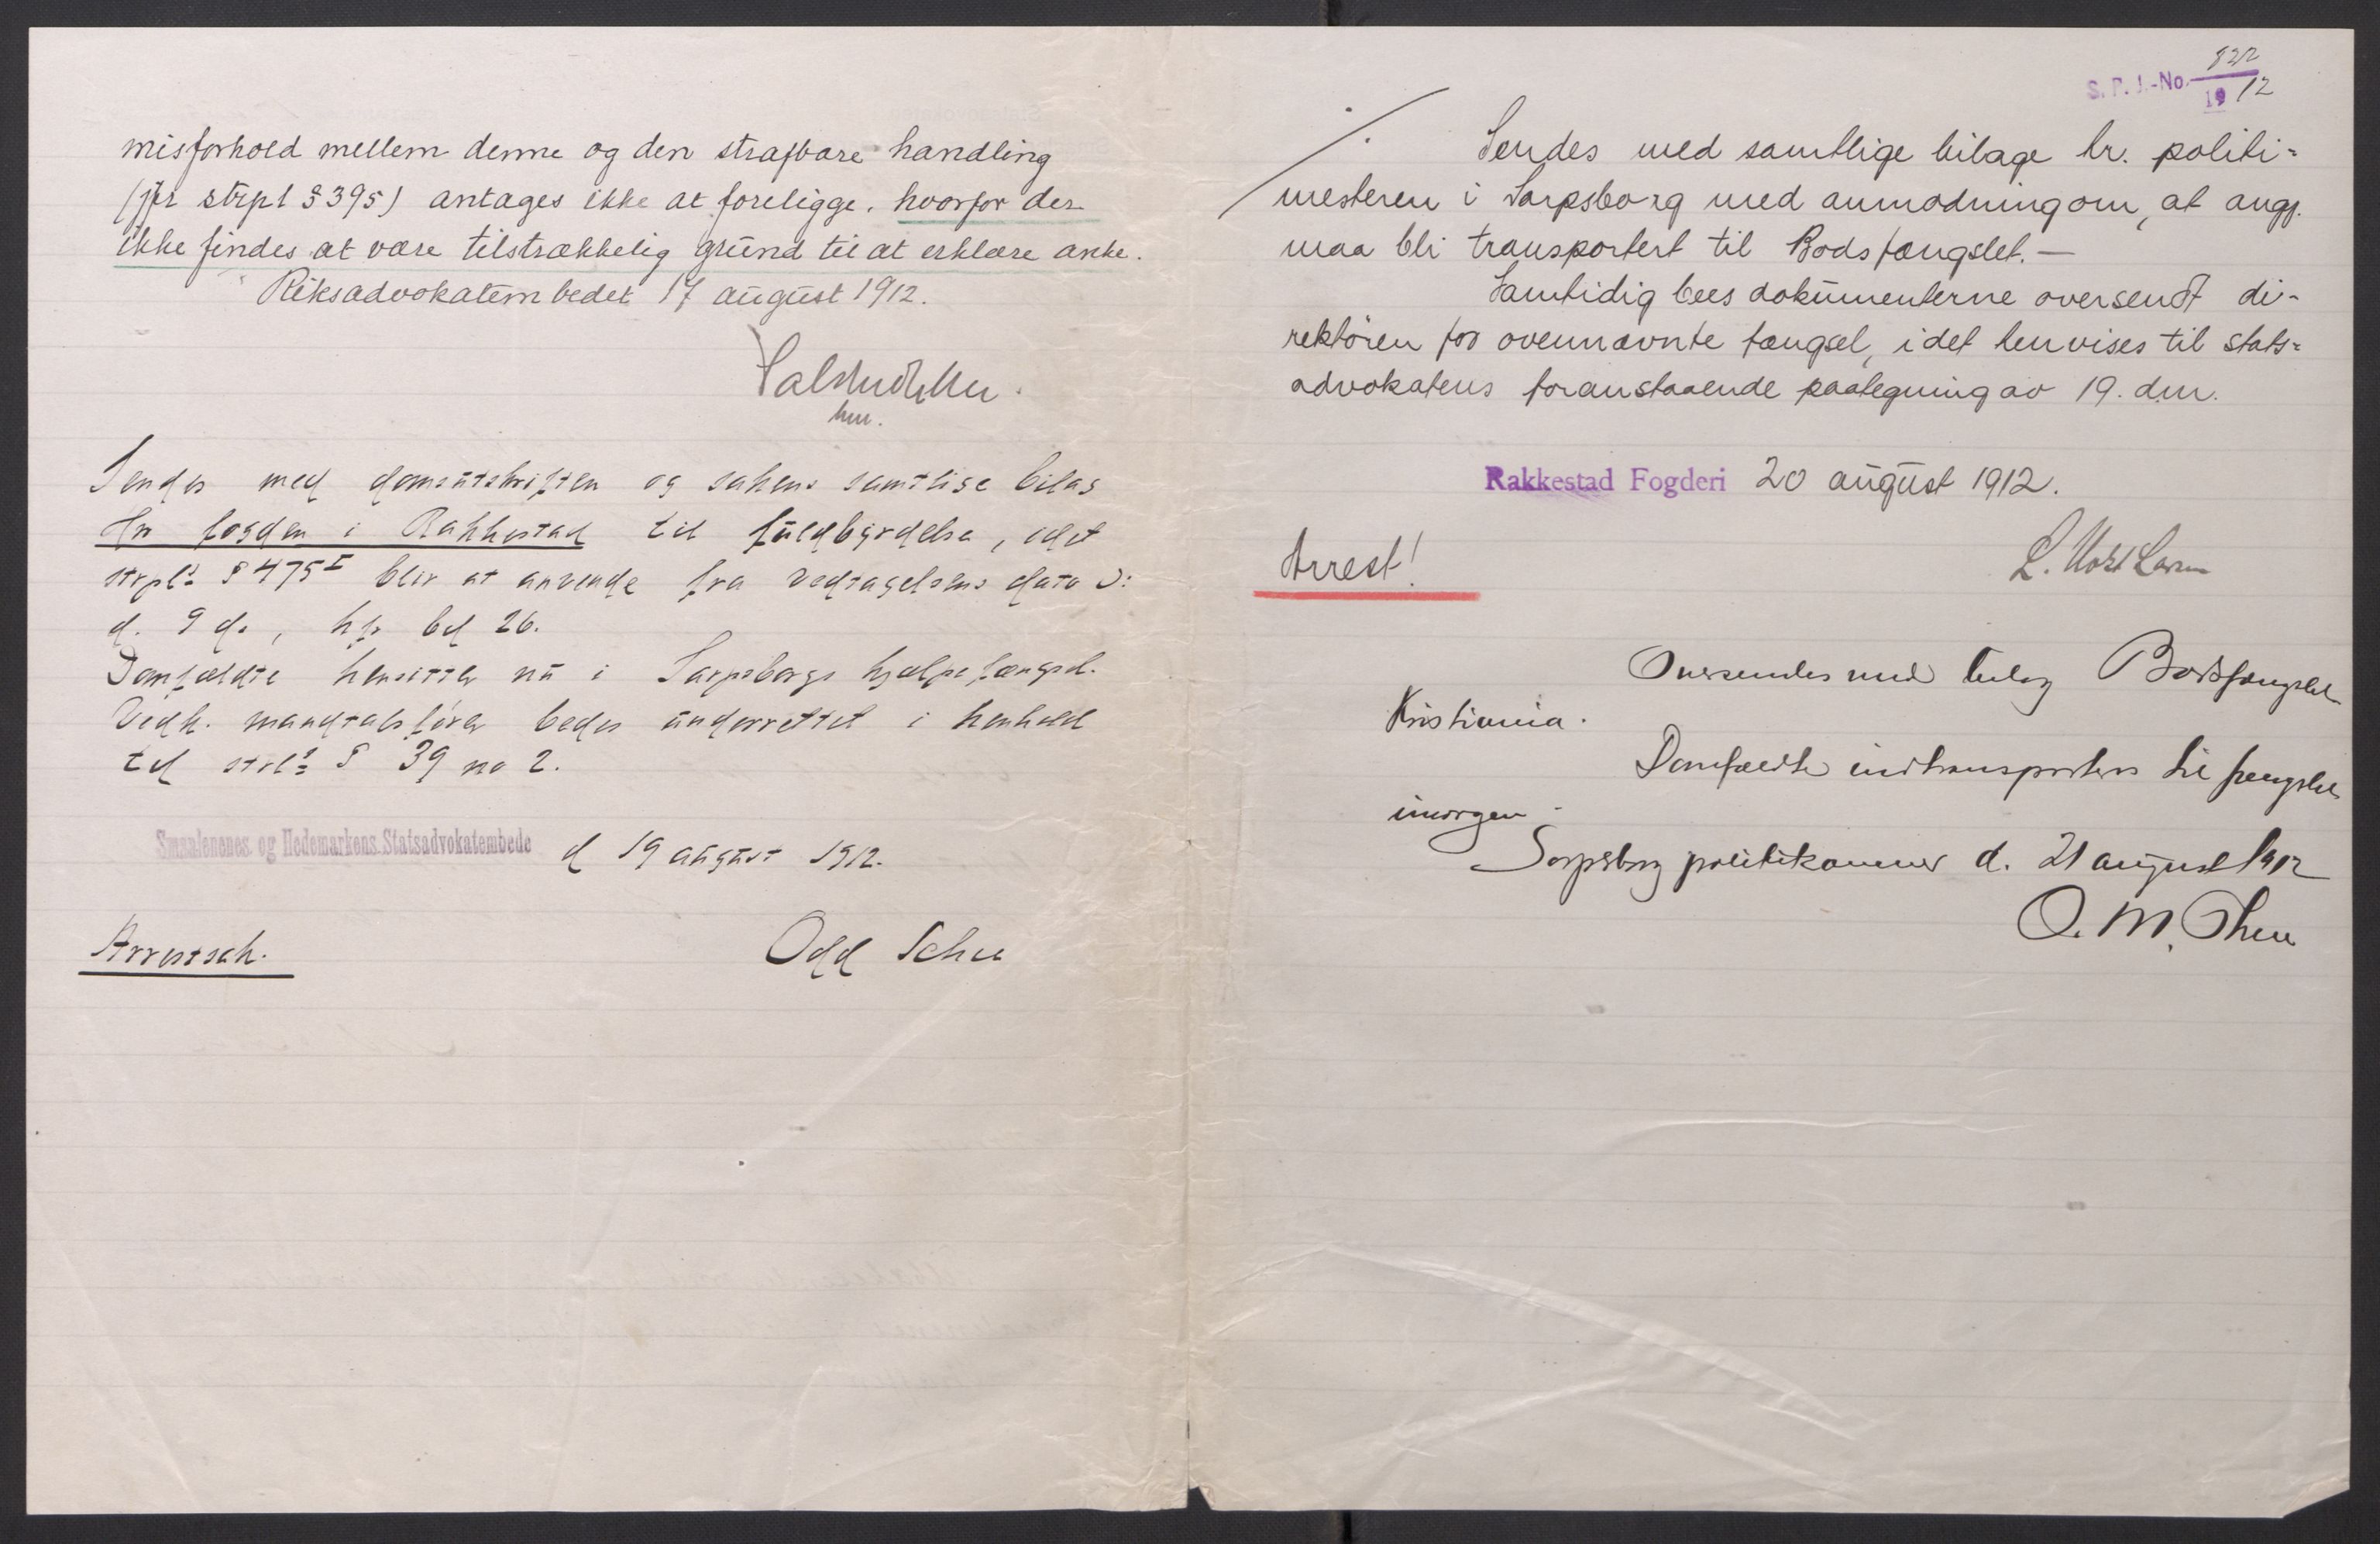 misforhold mellem denne og den strafbare handling
(jfr strpl § 395) antages ikke at foreligge, hvorfor der
ikke findes at være tilstrækkelig grund til at erklære anke.
Riksadvokatembedet 17 august 1912.
Sendes med domsutskriften og sakens samtlige bilag
Hr fogden i Rakkestad til fuldbyrdelse, idet
strpl.s § 475 I blir at anvende fra vedtagelsens dato ɔ:
d. 9 ds, bd 26.
Domfældte hensitter nu i Sarpsborgs hjælpefængsel.
Vedk. mandtalsfører bedes underrettet i henhold
til strl.s § 39 no 2.
Smaalenenes og Hedemarkens Statsadvokatembede d 19 august 1912.
Arrestsak. Odd Schee
S. P. J.-No. 822/1912
Sendes med samtlige bilage hr. politi=
mesteren i Sarpsborg med anmodning om, at angj.
maa bli transportert til Bodsfængslet.—
Samtidig bees dokumenterne oversendt di-
rektören for ovennævnte fængsel, idet henvises til stats=
advokatens foranstaaende paategning av 19. dm.
Rakkestad Fogderi 20 august 1912.
Arrest!
Oversendes med bilag Bodsfængslet
Kristiania.
Domfældte indtransporteres til fængslet
imorgen.
Sarpsborg politikammer d. 21 august 1912
O. M.